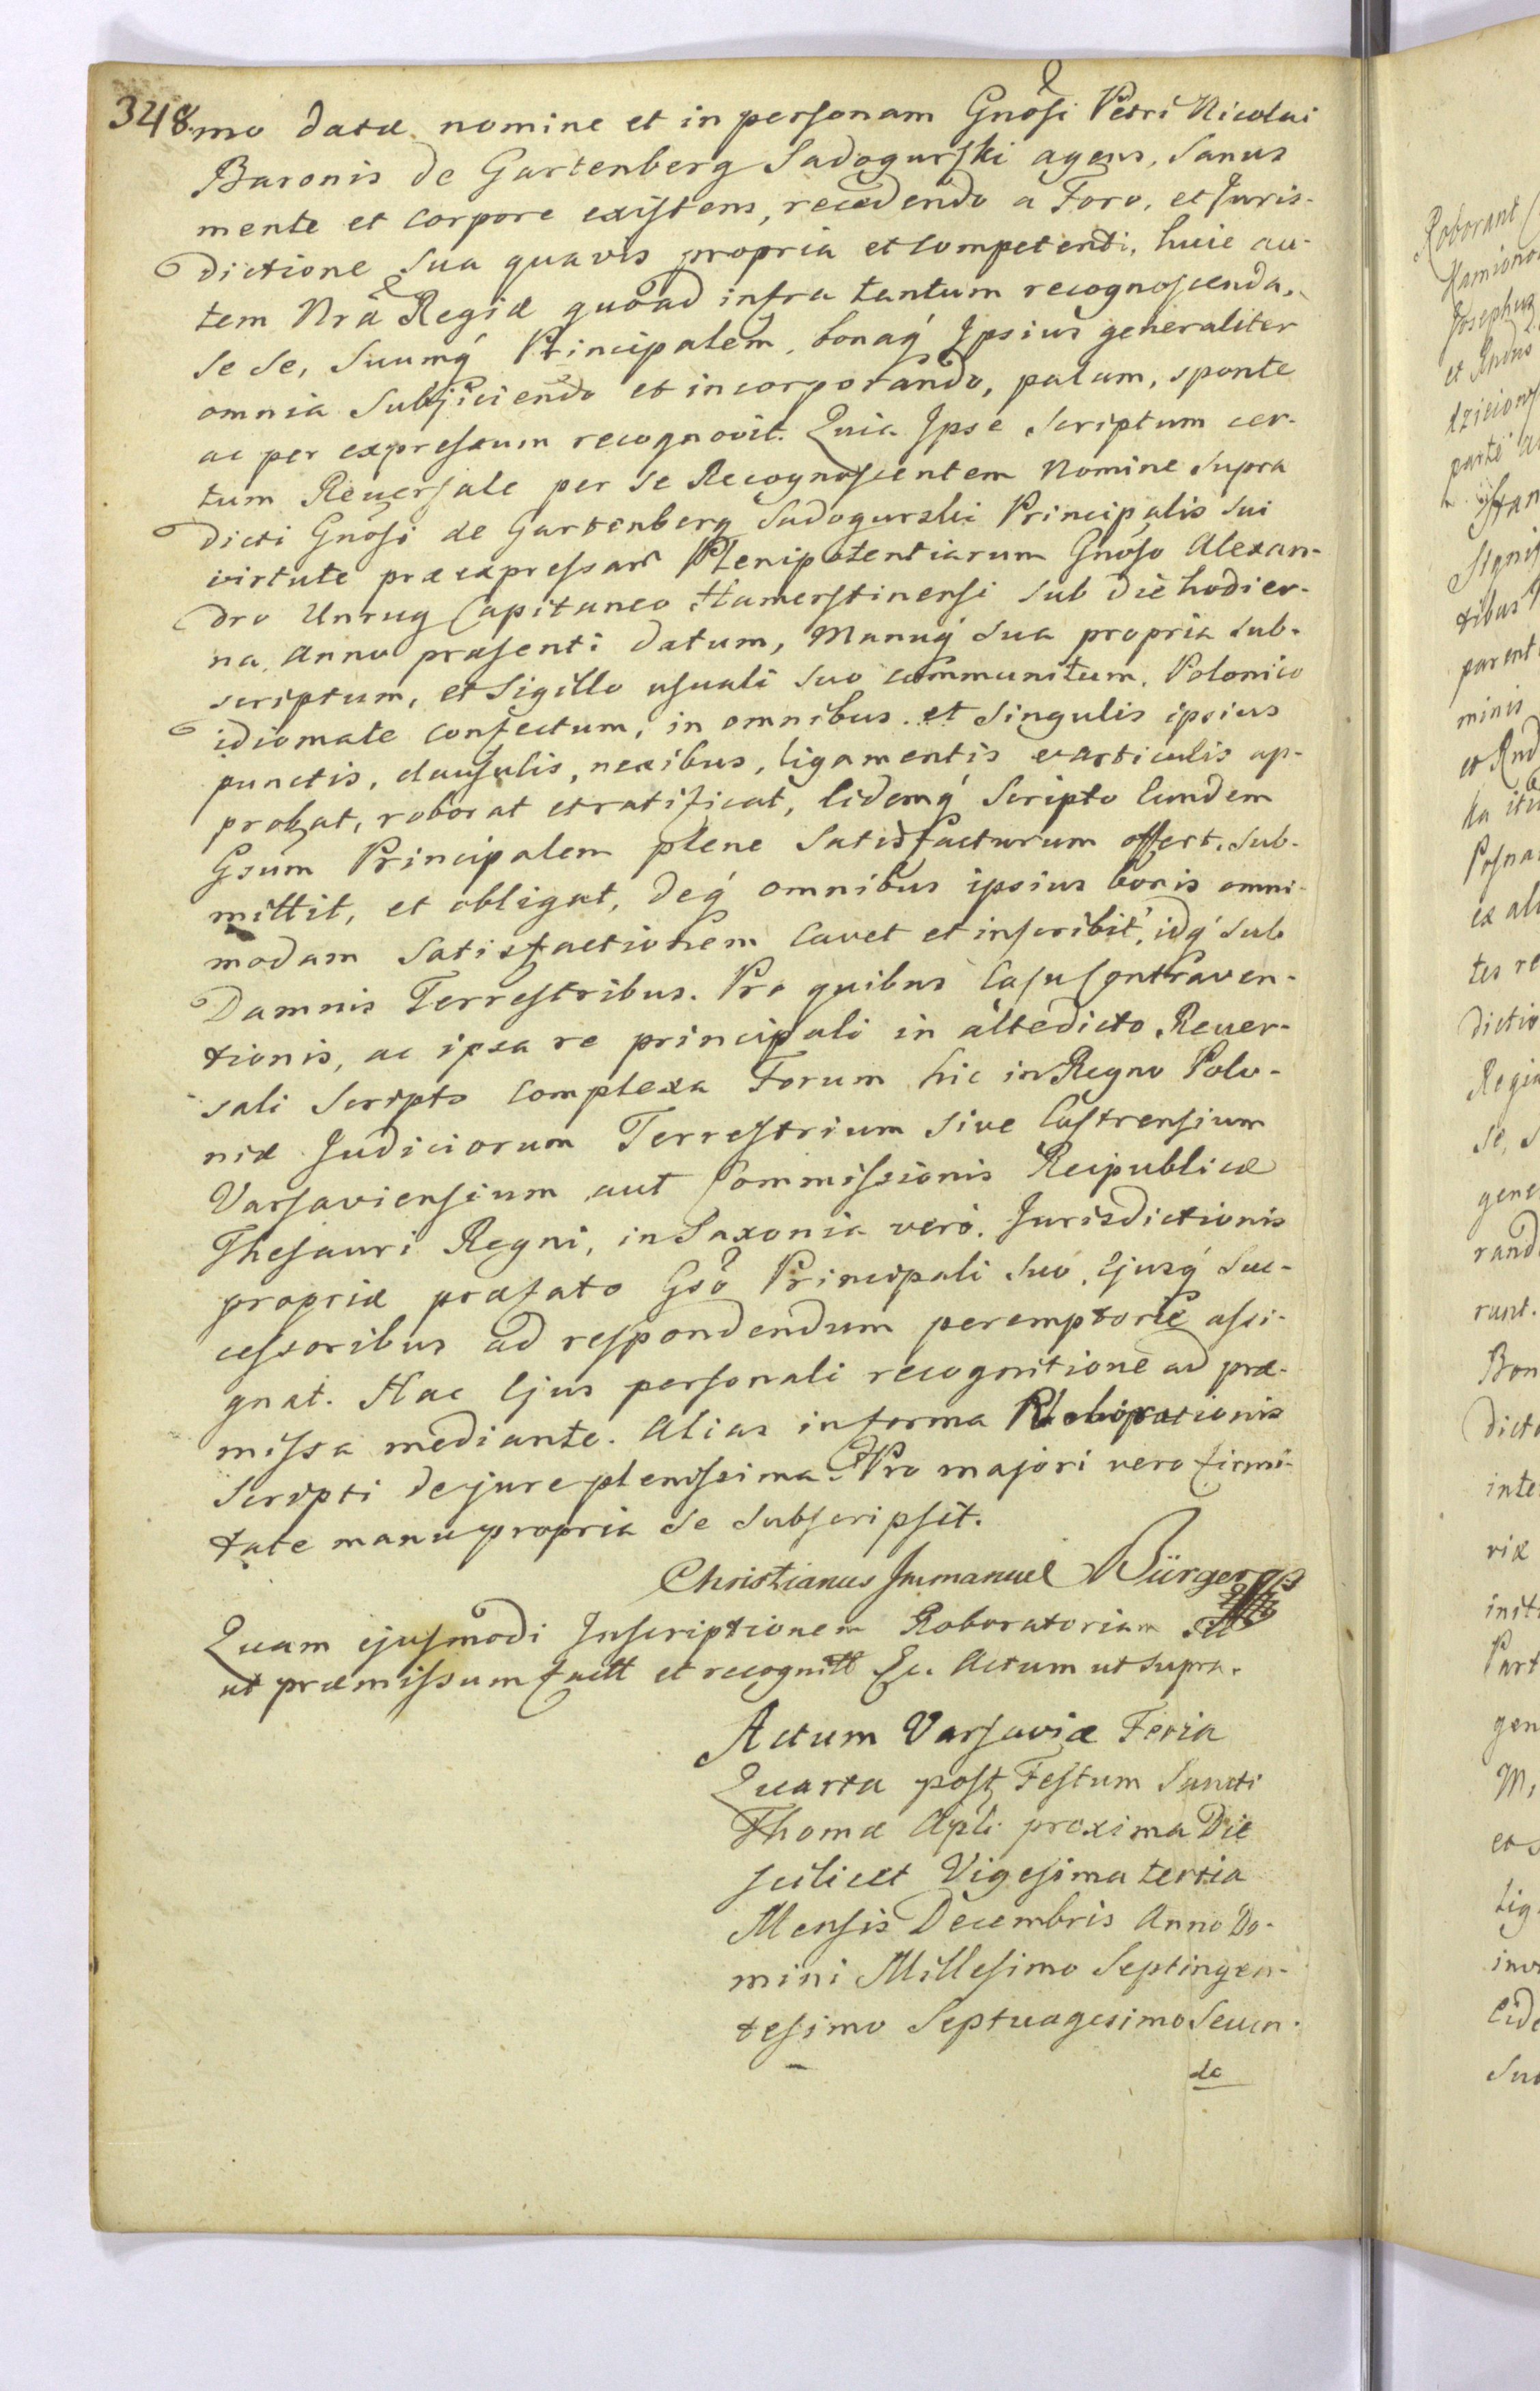 348.
mo datæ nomine et in personam Gnosi Petri Nicolai
Baronis de Gartenberg Sadogurski agens, Sanus
mente et Corpore existens, recedendo a Foro, et Juris-
dictione Sua quavis propria et Competenti, huic au-
tem Nrã Regiæ quoad infra tantum recognoscenda,
se se, Suumq́ Principalem, bonaq́ Ipsius generaliter
omnia Subjiciendo et incorporando, palam, sponte
ac per expressum recognovit. Quia Ipse Scriptum cer-
tum Reversale per se Recognoscentem Nomine Supra
dicti Gnosi de Gartenberg Sadogurski Principalis Sui
virtute præexpressarũ Plenipotentiarum Gnoso Alexan-
dro Unrug Capitaneo Hamerstinensi Sub die hodier-
na, Anno præsenti datum, Manuq́ Sua propria Sub-
scriptum, et Sigillo usuali Suo Communitum, Polonico
idiomate Confectum, in omnibus et Singulis ipsius
punctis, clausulis, nexibus, ligamentis et articulis ap-
probat, roborat et ratificat, Eidemq́ Scripto Eundem
Gsum Principalem plene Satisfacturum offert, Sub-
mittit, et obligat, deq́ omnibus ipsius bonis omni-
modam Satisfactionem Cavet et inscribit, idq́ Sub
Damnis Terrestribus. Pro quibus Casu Contraven-
tionis, ac ipsa re principali in altedicto Rever-
sali Scripto Complexa Forum hic in Regno Polo-
niæ Judiciorum Terrestrium Sive Castrensium
Varsaviensium aut Commissionis Reipublicæ
Thesauri Regni, in Saxonia verò Jurisdictionis
propriæ præfato Gsõ Principali Suo, Ejusq́ Suc-
cessoribus ad respondendum peremptorie assi-
gnat. Hac Ejus personali recognitione ad præ-
missa mediante. Alias in forma Roborationis
Scripti de jure plenissima. Pro majori vero firmi-
tate manu propria Se Subscripsit.
Christianus Immanuel Bürger
Quam ejusmodi Inscriptionem Roboratoriam
ut præmissum facit et recognitt Ec. Actum ut Supra.
Actum Varsaviæ Feria
Quarta post Festum Sancti
Thomæ Apli proxima Die
scilicet Vigesima tertia
Mensis Decembris Anno Do-
mini Millesimo Septingen-
tesimo Septuagesimo Secun-
do
Roborant
Josephus
et
parte
Signi
tibus
parent
minis
et
ka
Posna
ex
tes re
dictio
Regia
se, s
gene
rand
runt.
Bon
dicto
inte
riæ
insti
Part
gen
M
et s
lig
inv
Eide
Suo